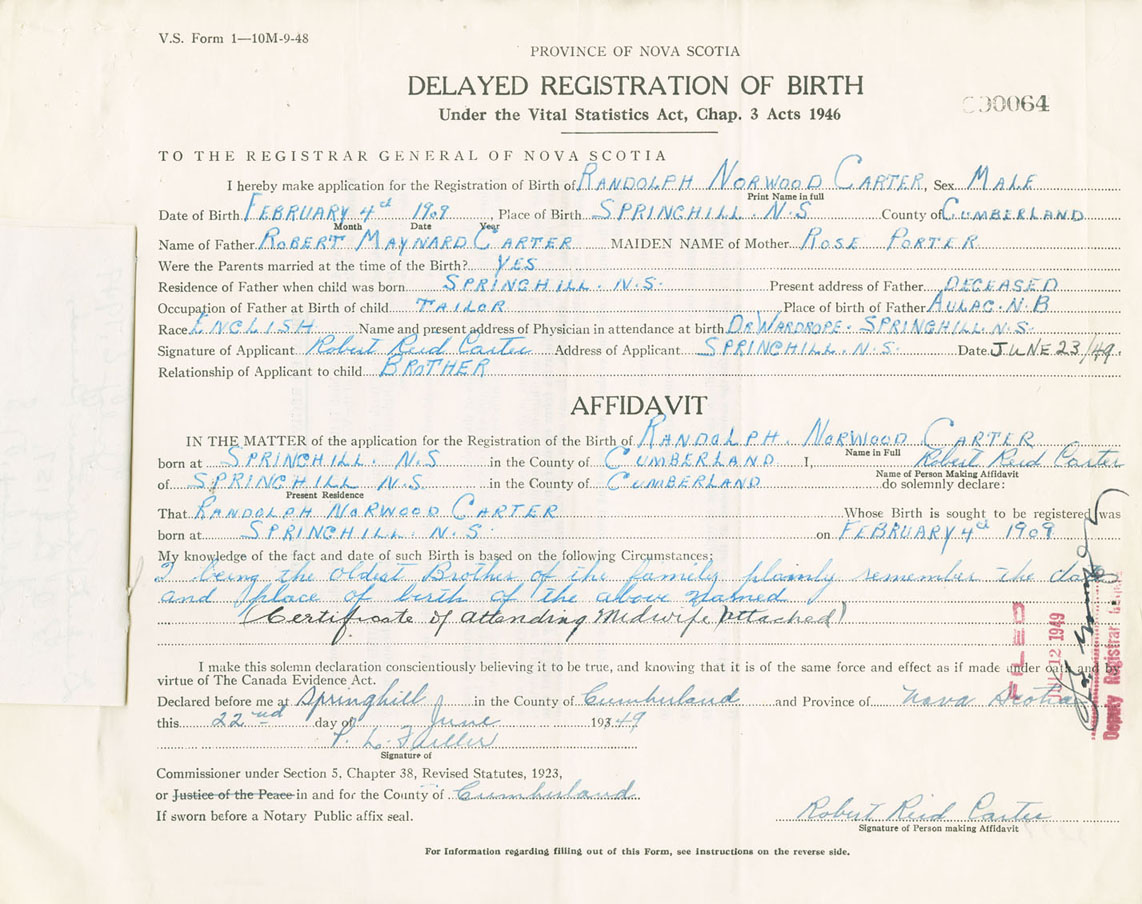 V.S. Form 1—10M-9-48
PROVINCE OF NOVA SCOTIA
DELAYED REGISTRATION OF BIRTH
Under the Vital Statistics Act, Chap. 3 Acts 1946
00064
TO THE REGISTRAR GENERAL OF NOVA SCOTIA
I hereby make application for the Registration of Birth of RANDOLPH NORWOOD CARTER, Sex MALE
Print Name in full
Date of Birth FEBRUARY 4th 1909, Place of Birth SPRINGHILL. N.S County of CUMBERLAND
Month Date Year
Name of Father ROBERT MAYNARD CARTER MAIDEN NAME of Mother ROSE PORTER
Were the Parents married at the time of the Birth? YES
Residence of Father when child was born SPRINGHILL. N.S. Present address of Father DECEASED
Occupation of Father at Birth of child TAILOR Place of birth of Father AULAC. N.B
Race ENGLISH Name and present address of Physician in attendance at birth DR WARDROPE. SPRINGHILL. N.S.
Signature of Applicant Robert Reid Carter Address of Applicant SPRINGHILL. N.S. Date JUNE 23/49.
Relationship of Applicant to child BROTHER
AFFIDAVIT
IN THE MATTER of the application for the Registration of the Birth of RANDOLPH. NORWOOD CARTER
Name in Full
born at SPRINGHILL. N.S in the County of CUMBERLAND I, Robert Reid Carter
Name of Person Making Affidavit
of SPRINGHILL N.S. in the County of CUMBERLAND do solemnly declare:
Present Residence
That RANDOLPH NORWOOD CARTER Whose Birth is sought to be registered was
born at SPRINGHILL. N.S. on FEBRUARY 4th 1909
My knowledge of the fact and date of such Birth is based on the following Circumstances;
I being the oldest Brother of the family plainly remember the date
and place of birth of the above named
(Certificate of attending Midwife attached)
I make this solemn declaration conscientiously believing it to be true, and knowing that it is of the same force and effect as if made under oath and by
virtue of The Canada Evidence Act.
Declared before me at Springhill in the County of Cumberland and Province of Nova Scotia
this 22nd day of June 19349
Signature of
Commissioner under Section 5, Chapter 38, Revised Statutes, 1923,
or Justice of the Peace in and for the County of Cumberland
If sworn before a Notary Public affix seal.
Robert Reid Carter
Signature of Person making Affidavit
For Information regarding filling out of this Form, see instructions on the reverse side.
FILED
12 1949
Deputy Registrar